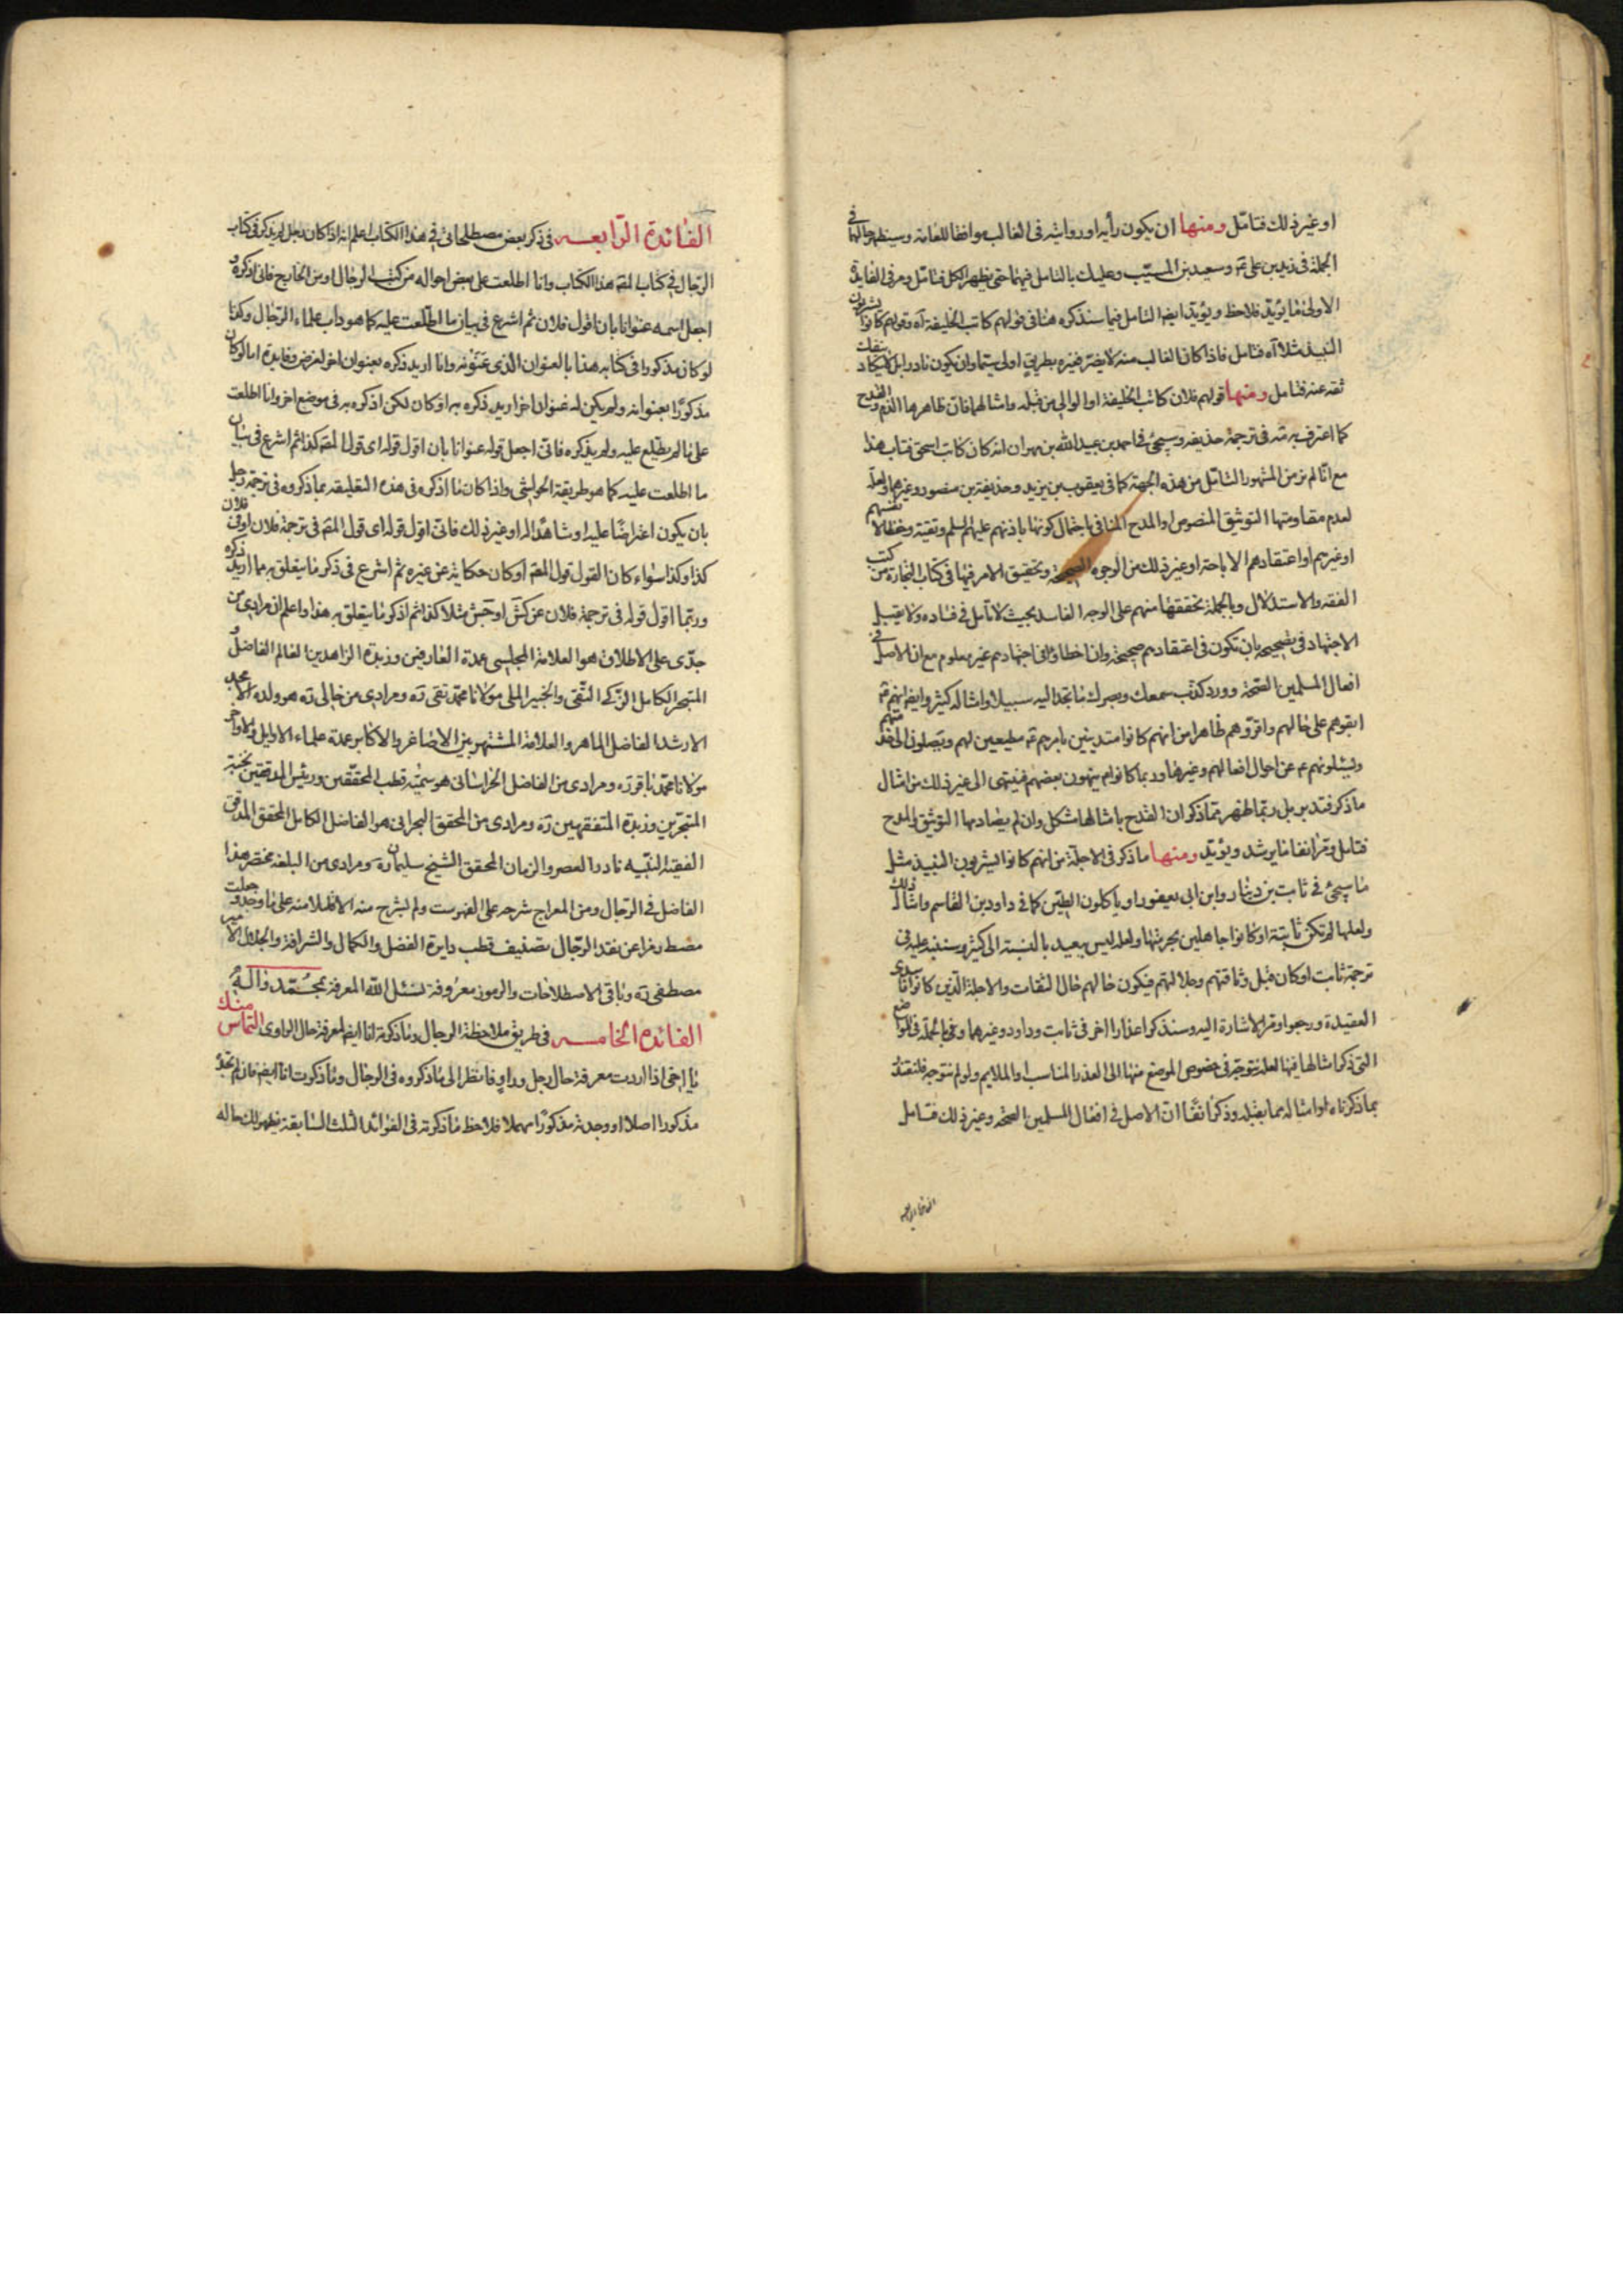 او غير ذلك فتامّل ومنها ان يكون رأيه او روايته فى الغالب موافقا للعامة وسيظهر حالها فى
الجملة فى زيد بن على ره وسعيد بن المسيّب وعليك بالتامل فيهما حتى يظهر الكل فتامّل ومر فى الفايدة
الاولى ما يؤيّد فلاحظ ويؤيّد ايضا التامل فيما سنذكره هنا فى قولهم كاتب الخليفة آه وقولهم كانوا يشربون
النبيذ مثلا آه فتامل فاذا كان الغالب منه لا يضر فغيره بطريق اولى سيّما وان يكون نادرا بل لا يكاد ينفك
ثقه عنه فتامل ومنها قولهم فلان كاتب الخليفة او الوالى من قبله وامثالهما فان ظاهرها الذم والقدح
كما اعترف به مه فى ترجمة حذيفه وسيجئ فى احمد بن عبيد الله بن مهران انه كان كاتب اسحق فتاب هذا
مع انّا لم نر من المشهور التأمّل من هذه الجهة كما فى يعقوب بن يزيد وحذيفة بن منصور وغيرهما ولعله
لعدم مقاومتها التوثيق المنصوص او المدح المنافى باحتمال كونها باذنهم عليهم السلم وتقية وحفظا لانفسهم
او غيرهم او اعتقادهم الاباحة او غير ذلك من الوجوه الصحيحة وتحقيق الامر فيها فى كتاب التجارة من كتب
الفقه والاستدلال وبالجملة تحققها منهم على الوجه الفاسد بحيث لا تأمل فى فساده ولا يقبل
الاجتهاد فى تصحيحه بان تكون فى اعتقادهم صحيحة وان اخطاؤا فى اجتهادهم غير معلوم مع ان الاصل فى
افعال المسلمين الصحّة وورد كذب سمعك وبصرك ما تجد اليه سبيلا وامثاله كثير وايضا انهم ع
ابقوهم على حالهم واقرّوهم ظاهرا من انهم كانوا متدينين بامرهم ع مطيعين لهم ويصلون الى خدمتهم
ويسئلونهم ع عن احوال افعالهم وغيرها وربما كانوا ع ينهون بعضهم فينتهى الى غير ذلك من امثال
ما ذكر فتدبر بل ربّما ظهر ممّا ذكر ان القدح بامثالها مشكل وان لم يضادها التوثيق والمدح
فتامل ومر انفا ما يرشد ويؤيّد ومنها ما ذكر فى الاجلّة من انهم كانوا يشربون النبيذ مثل
ما سيجئ فى ثابت بن دينار وابن ابى يعفور او ياكلون الطين كما فى داود بن القاسم وامثال ذلك
ولعلها لم تكن ثابتة او كانوا جاهلين بحرمتها ولعله ليس ببعيد بالنسبة الى كثير وسننبه عليه فى
ترجمة ثابت او كان قبل وثاقتهم وجلالتهم فيكون حالهم حال الثقات والاجلة الذين كانوا فاسدى
العقيدة ورجعوا ومر الاشارة اليه وسنذكر اعذارا اخر فى ثابت وداود وغيرهما وبالجملة فى المواضع
التى ذكر امثالها فيها لعله نتوجّه فى خصوص الموضع منها الى العذر المناسب والملايم ولو لم نتوجه فلنعتذر
بما ذكرناه او امثاله مما يقبله وذكرنا انفًا انّ الاصل فى افعال المسلمين الصحة وغير ذلك فتامل
الفائدة الرابعه
الفائدة الرّابعه فى ذكر بعض مصطلحاتى فى هذا الكتاب اعلم انه اذا كان رجل لم يذكر فى كتاب
الرّجال فى كتاب المصّه هذا الكتاب وانا اطلعت على بعض احواله من كتب الرجال او من الخارج فانى اذكره و
اجعل اسمه عنوانا بان اقول فلان ثم اشرع فى بيان ما اطّلعت عليه كما هو داب علماء الرّجال وكذا
لو كان مذكورا فى كتابه هذا بالعنوان الّذى عَنّونَه وانا اريد ذكره بعنوان اخر لغرض وفايدة اما لو كان
مذكورًا بعنوانه ولم يكن له عنوان اخر اريد ذكره به او كان لكن اذكره به فى موضع اخر وانا اطلعت
على ما لم يطّلع عليه ولم يذكره فانّى اجعل قوله عنوانا بان اقول قوله اى قول المصّه كذا ثم اشرع فى بيان
ما اطلعت عليه كما هو طريقة الحواشى واذا كان ما اذكره فى هذه التعليقه بما ذكروه فى ترجمة رجل
بان يكون اعتراضًا عليه او شاهدًا له او غير ذلك فانّى اقول قوله اى قول المصّه فى ترجمة فلان او فى فلان
كذا وكذا سواء كان القول قول المصّه او كان حكاية عن غيره ثم اشرع فى ذكر ما يتعلق به مما اريد ذكره
وربّما اقول قوله فى ترجمة فلان عن كش او جش مثلا كذا ثم اذكر ما يتعلق به هذا واعلم ان مرادى من
جدّى على الاطلاق هو العلامة المجلسى عمدة العارفين وزبدة الزاهدين العالم الفاضل و
المتبحر الكامل الزّكى التّقى والخبير الملى مولانا محمّد تقى ره ومرادى من خالى ره هو ولده الامجد
الارشد الفاضل الماهر والعلامة المشتهر بين الاصاغر والاكابر عمدة علماء الاوايل والاواخر
مولانا محمّد باقر ره ومرادى من الفاضل الخراسانى هو سميّه قطب المحققين ورئيس المدققين نخبة
المتبحّرين وزبدة المتفقهين ره ومرادى من المحقق البحرانى هو الفاضل الكامل المحقق المدقق
الفقيه النّبيه نادرة العصر والزمان المحقق الشيخ سليمان ره ومرادى من البلغه مختصر هذا
الفاضل فى الرّجال ومن المعراج شرحه على الفهرست ولم يشرح منه الا قليلا منه على ما وجدو جعلت
مصط رمزا عن نقد الرّجال تصنيف قطب دايرة الفضل والكمال والشرافة والجلال الامير
مصطفى ره وباقى الاصطلاحات والرموز معروفة نسئل اللّه المعرفة بمحمّد واله
الفائدة الخامسه فى طريق ملاحظة الرجال وما ذكرته انا ايضا لمعرفة حال الراوى التماس منك
يا اخى اذا اردت معرفة حال رجل وراوٍ فانظر الى ما ذكروه فى الرجال وما ذكرت انا ايضا فان لم تجده
مذكورا اصلا او وجدته مذكورًا مهملا فلاحظ ما ذكرته فى الفوائد الثلث السّابقة يظهر لك حاله